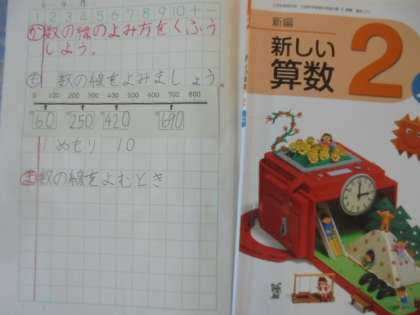 1 2 3 4 5 6 7 8 9 10 +
め 数の線のよみ方をくふう
しよう。
も 数の線をよみましょう
0 100 200 300 400 500 600 700 800
60 250 420 690
1めもり 10
ま 数の線をよむとき
新編
新しい
算数
2